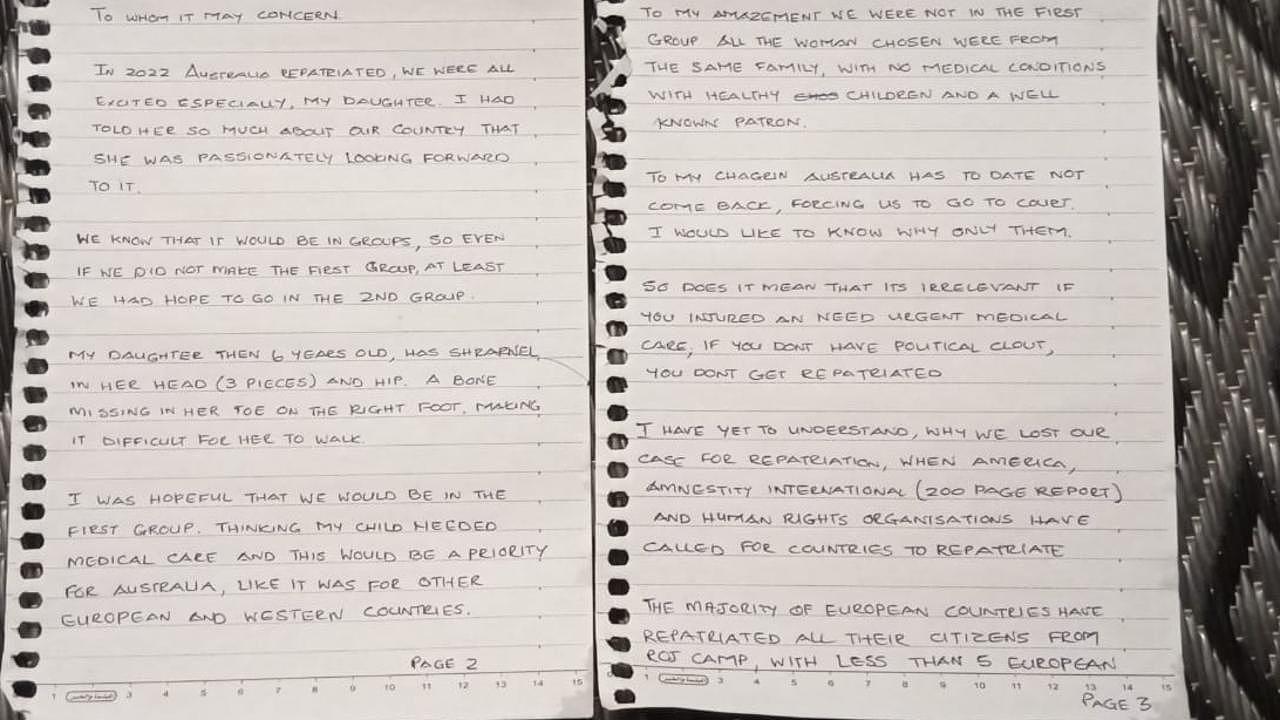 TO WHOM IT MAY CONCERN
IN 2022 AUSTRALIA REPATRIATED, WE WERE ALL
EXCITED ESPECIALLY, MY DAUGHTER. I HAD
TOLD HER SO MUCH ABOUT OUR COUNTRY THAT
SHE WAS PASSIONATELY LOOKING FORWARD
TO IT.
WE KNOW THAT IT WOULD BE IN GROUPS, SO EVEN
IF WE DID NOT MAKE THE FIRST GROUP, AT LEAST
WE HAD HOPE TO GO IN THE 2ND GROUP.
MY DAUGHTER THEN 6 YEARS OLD, HAS SHRAPNEL
IN HER HEAD (3 PIECES) AND HIP. A BONE
MISSING IN HER TOE ON THE RIGHT FOOT, MAKING
IT DIFFICULT FOR HER TO WALK.
I WAS HOPEFUL THAT WE WOULD BE IN THE
FIRST GROUP. THINKING MY CHILD NEEDED
MEDICAL CARE AND THIS WOULD BE A PRIORITY
FOR AUSTRALIA, LIKE IT WAS FOR OTHER
EUROPEAN AND WESTERN COUNTRIES.
PAGE 2
1 3 4 5 6 7 8 9 10 11 12 13 14 15
TO MY AMAZEMENT WE WERE NOT IN THE FIRST
GROUP ALL THE WOMAN CHOSEN WERE FROM
THE SAME FAMILY, WITH NO MEDICAL CONDITIONS
WITH HEALTHY CHILDREN AND A WELL
KNOWN PATRON.
TO MY CHAGRIN AUSTRALIA HAS TO DATE NOT
COME BACK, FORCING US TO GO TO COURT.
I WOULD LIKE TO KNOW WHY ONLY THEM.
SO DOES IT MEAN THAT ITS IRRELEVANT IF
YOU INJURED AN NEED URGENT MEDICAL
CARE, IF YOU DONT HAVE POLITICAL CLOUT,
YOU DONT GET REPATRIATED
I HAVE YET TO UNDERSTAND, WHY WE LOST OUR
CASE FOR REPATRIATION, WHEN AMERICA,
AMNESTITY INTERNATIONAL (200 PAGE REPORT)
AND HUMAN RIGHTS ORGANISATIONS HAVE
CALLED FOR COUNTRIES TO REPATRIATE
THE MAJORITY OF EUROPEAN COUNTRIES HAVE
REPATRIATED ALL THEIR CITIZENS FROM
ROJ CAMP, WITH LESS THAN 5 EUROPEAN
1 3 4 5 6 7 8 9 10 11 12 13 14 15
PAGE 3